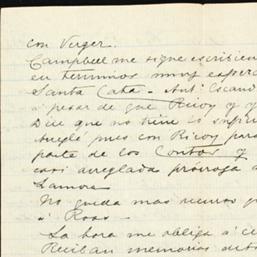 con Verger.
Campbell me sigue escribien
en terminos muy espera
Santa Cata - Ant.º Escand
á pesar de que Ricoy y y
Dice que no tiene
Arreglé pues con Ricoy para
parte de los Contos y
casi arreglada prórroga
Zamora
No queda mas recurso q
á Rosas -
La hora me obliga á
Reciban memorias